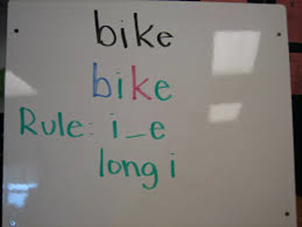 bike
bike
Rule: i_e
long i